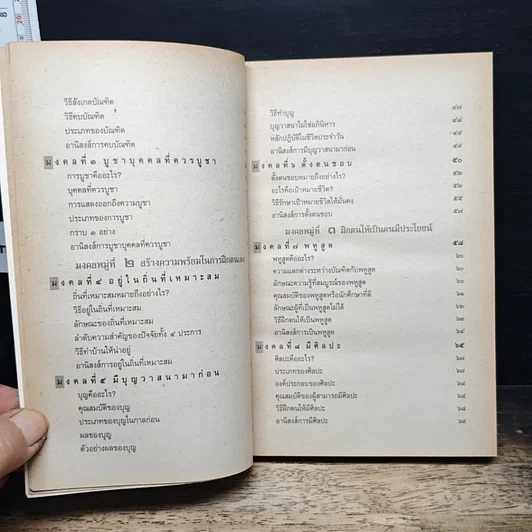 วิธีสังเกตบัณฑิต
วิธีคบบัณฑิต
ประเภทของบัณฑิต
อานิสงส์การคบบัณฑิต
มงคลที่ ๓ บูชาบุคคลที่ควรบูชา
การบูชาคืออะไร?
บุคคลที่ควรบูชา
การแสดงออกถึงความบูชา
ประเภทของการบูชา
กราบ ๓ อย่าง
อานิสงส์การบูชาบุคคลที่ควรบูชา
มงคลหมู่ที่ ๒ สร้างความพร้อมในการฝึกตนเอง
มงคลที่ ๔ อยู่ในถิ่นที่เหมาะสม
ถิ่นที่เหมาะสมหมายถึงอย่างไร?
วิธีอยู่ในถิ่นที่เหมาะสม
ลักษณะของถิ่นที่เหมาะสม
ลำดับความสำคัญของปัจจัยทั้ง ๔ ประการ
วิธีทำบ้านให้น่าอยู่
อานิสงส์การอยู่ในถิ่นที่เหมาะสม
มงคลที่ ๕ มีบุญวาสนามาก่อน
บุญคืออะไร?
คุณสมบัติของบุญ
ประเภทของบุญในกาลก่อน
ผลของบุญ
ตัวอย่างผลของบุญ
วิธีทำบุญ ๔๗
บุญวาสนาไม่ใช่อภินิหาร ๔๗
หลักปฏิบัติในชีวิตประจำวัน
อานิสงส์การมีบุญวาสนามาก่อน
มงคลที่ ๖ ตั้งตนชอบ ๕๐
ตั้งตนชอบหมายถึงอย่างไร?
อะไรคือเป้าหมายชีวิต?
วิธีรักษาเป้าหมายชีวิตให้มั่นคง
อานิสงส์การตั้งตนชอบ ๕๗
มงคลหมู่ที่ ๓ ฝึกตนให้เป็นคนมีประโยชน์
มงคลที่ ๗ พหูสูต ๕๘
พหูสูตคืออะไร? ๖๐
ความแตกต่างระหว่างบัณฑิตกับพหูสูต ๖๐
ลักษณะความรู้ที่สมบูรณ์ของพหูสูต
คุณสมบัติของพหูสูตหรือนักศึกษาที่ดี
ลักษณะผู้ที่เป็นพหูสูตไม่ได้
วิธีฝึกตนให้เป็นพหูสูต
อานิสงส์การเป็นพหูสูต
มงคลที่ ๘ มีศิลปะ ๖๕
ศิลปะคืออะไร?
ประเภทของศิลปะ
องค์ประกอบของศิลปะ
คุณสมบัติของผู้สามารถมีศิลปะ
วิธีฝึกตนให้มีศิลปะ
อานิสงส์การมีศิลปะ